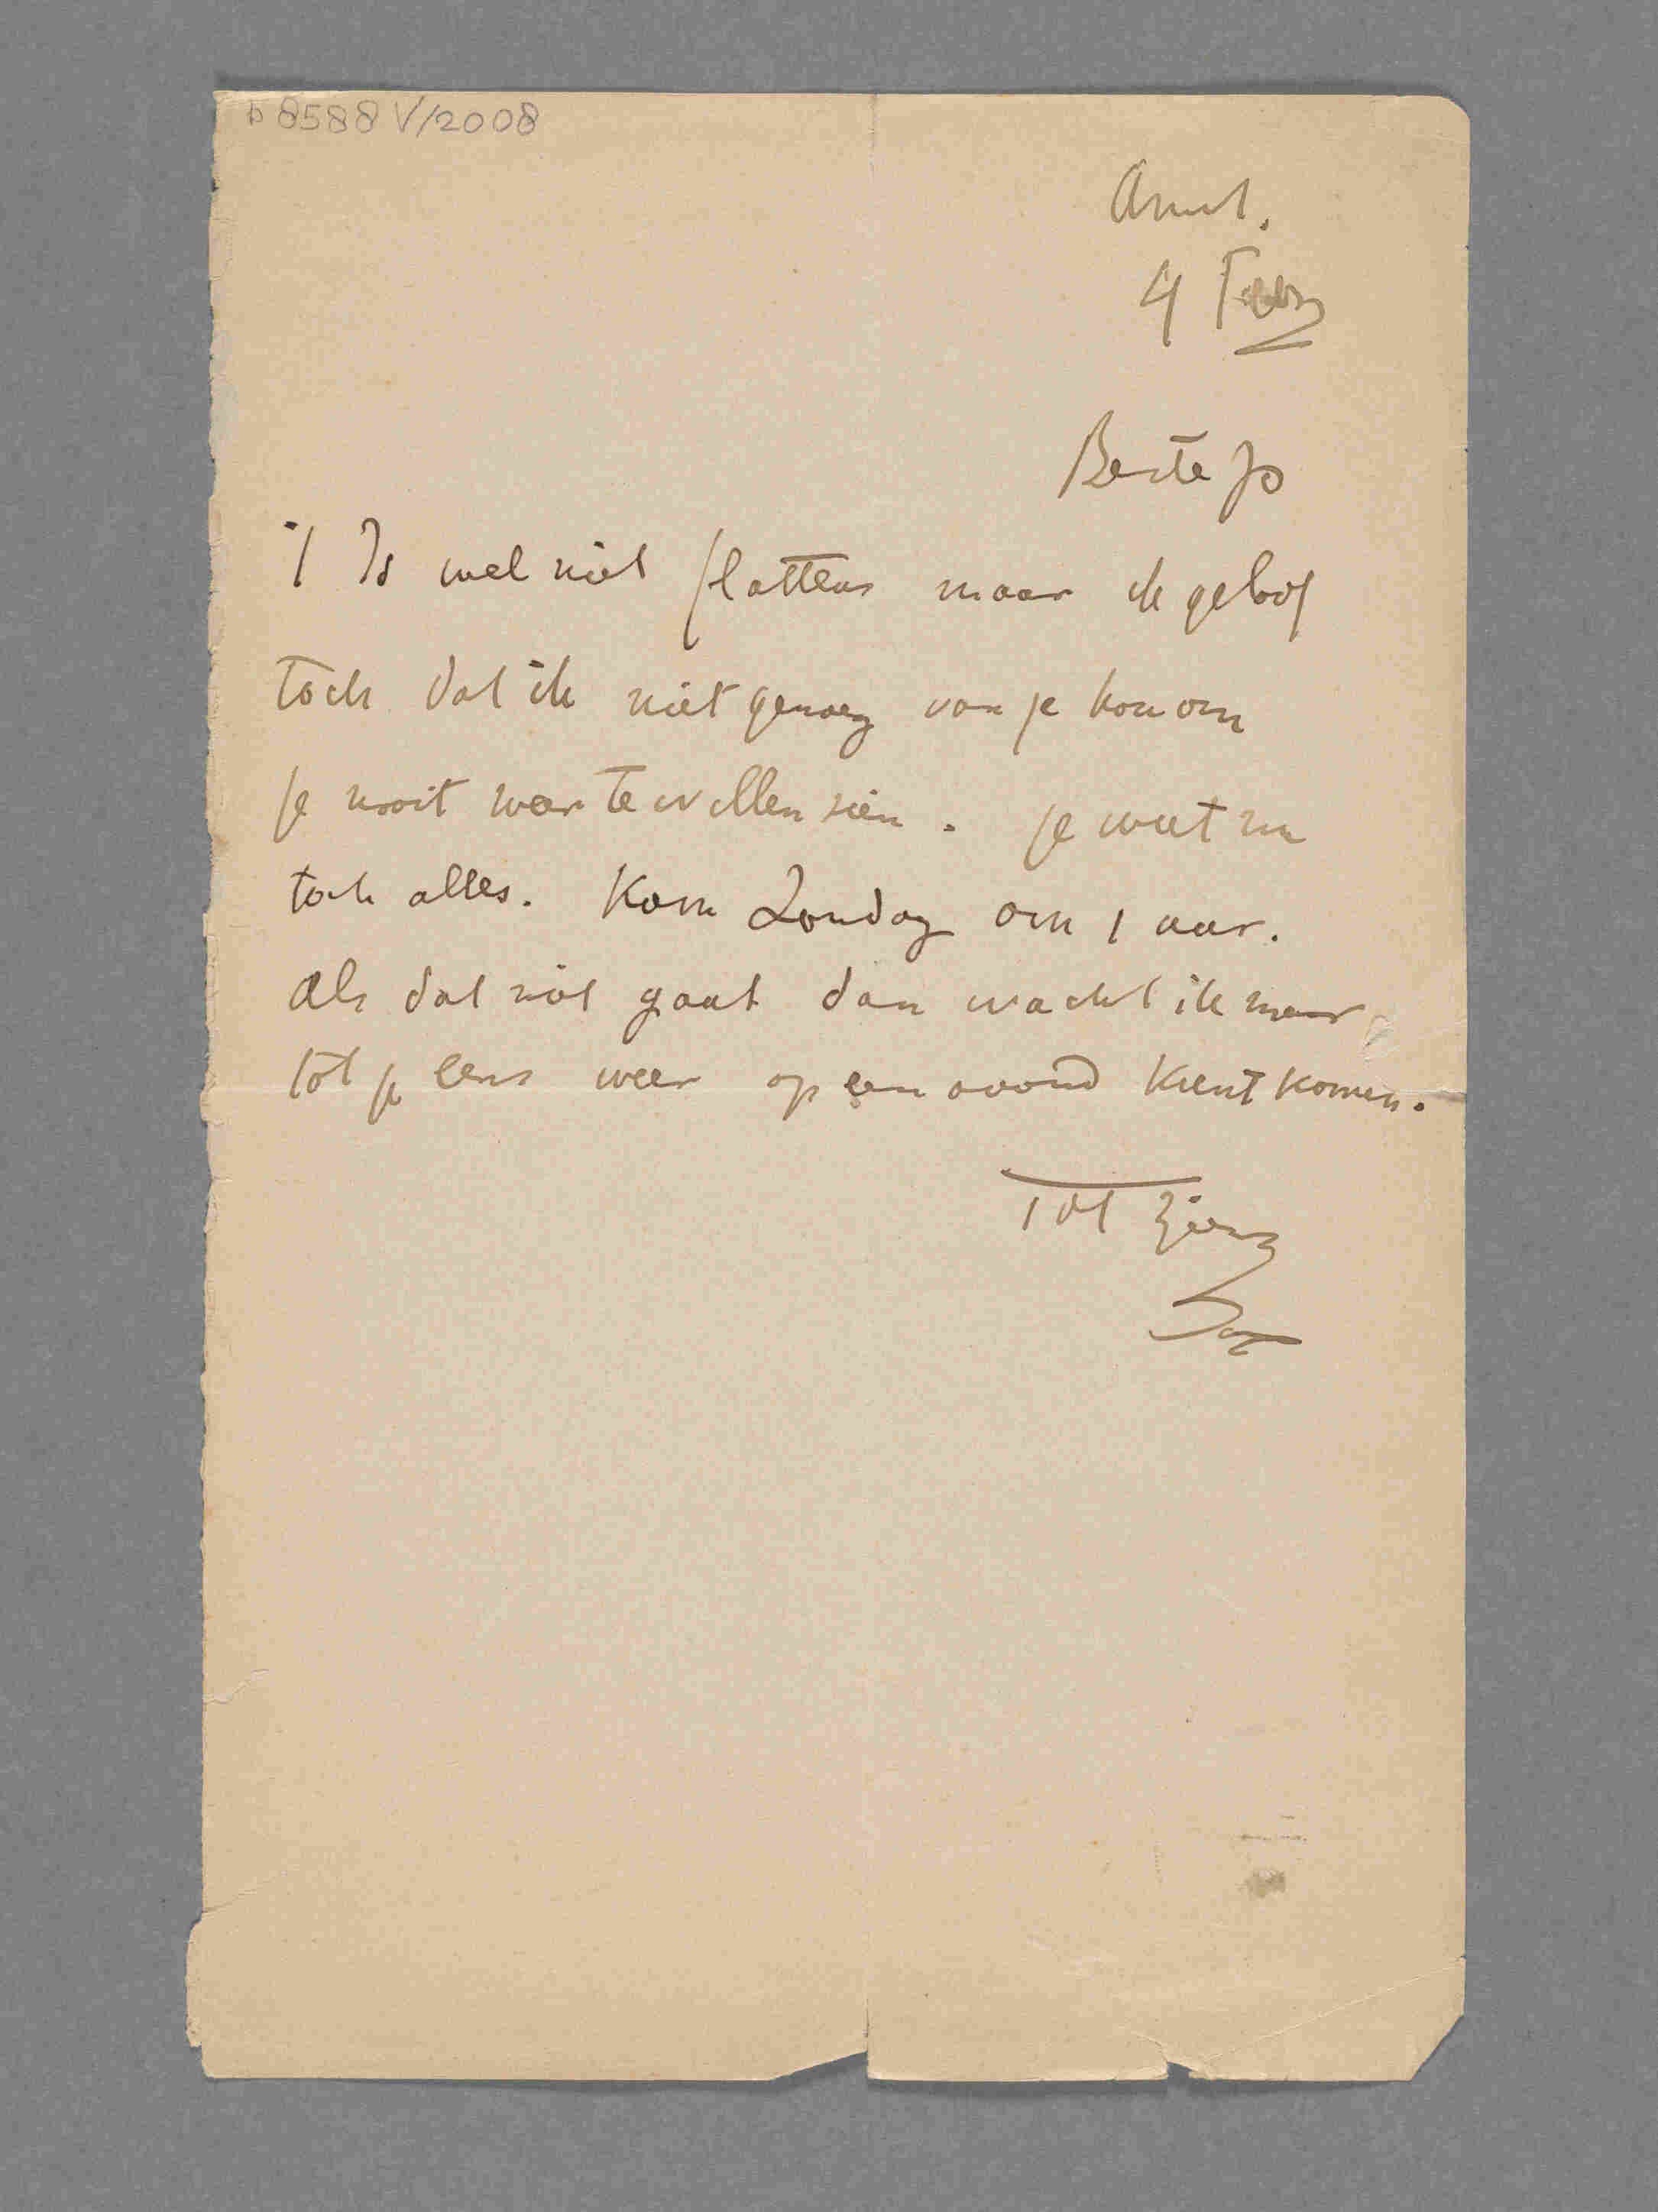 b 8588 V/2008
Amst.
4 Febr
Beste Jo
't Is wel niet flatteus maar ik geloof
toch dat ik niet genoeg van je hou om
je nooit weer te willen zien. Je weet nu
toch alles. Kom Zondag om 1 uur.
Als dat niet gaat dan wacht ik maar
tot je eens weer op een avond kunt komen.
Tot ziens